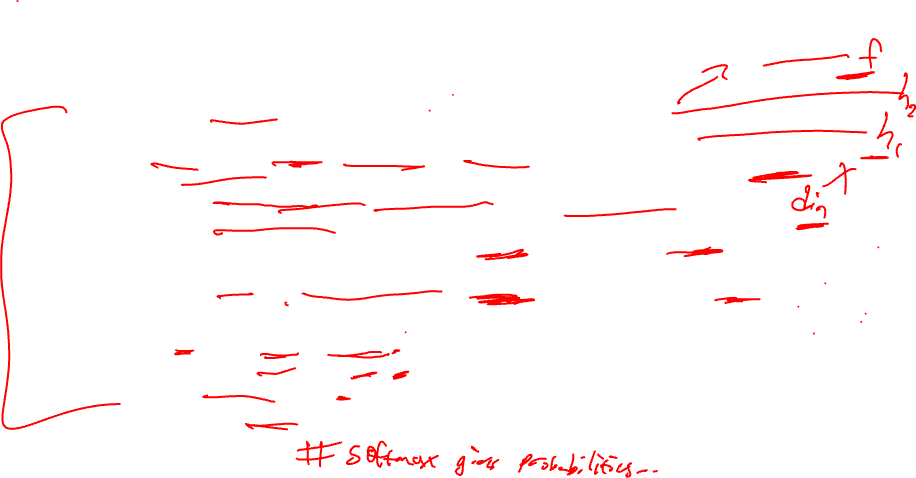 f
h2
h1
x
din
# softmax gives probabilities...